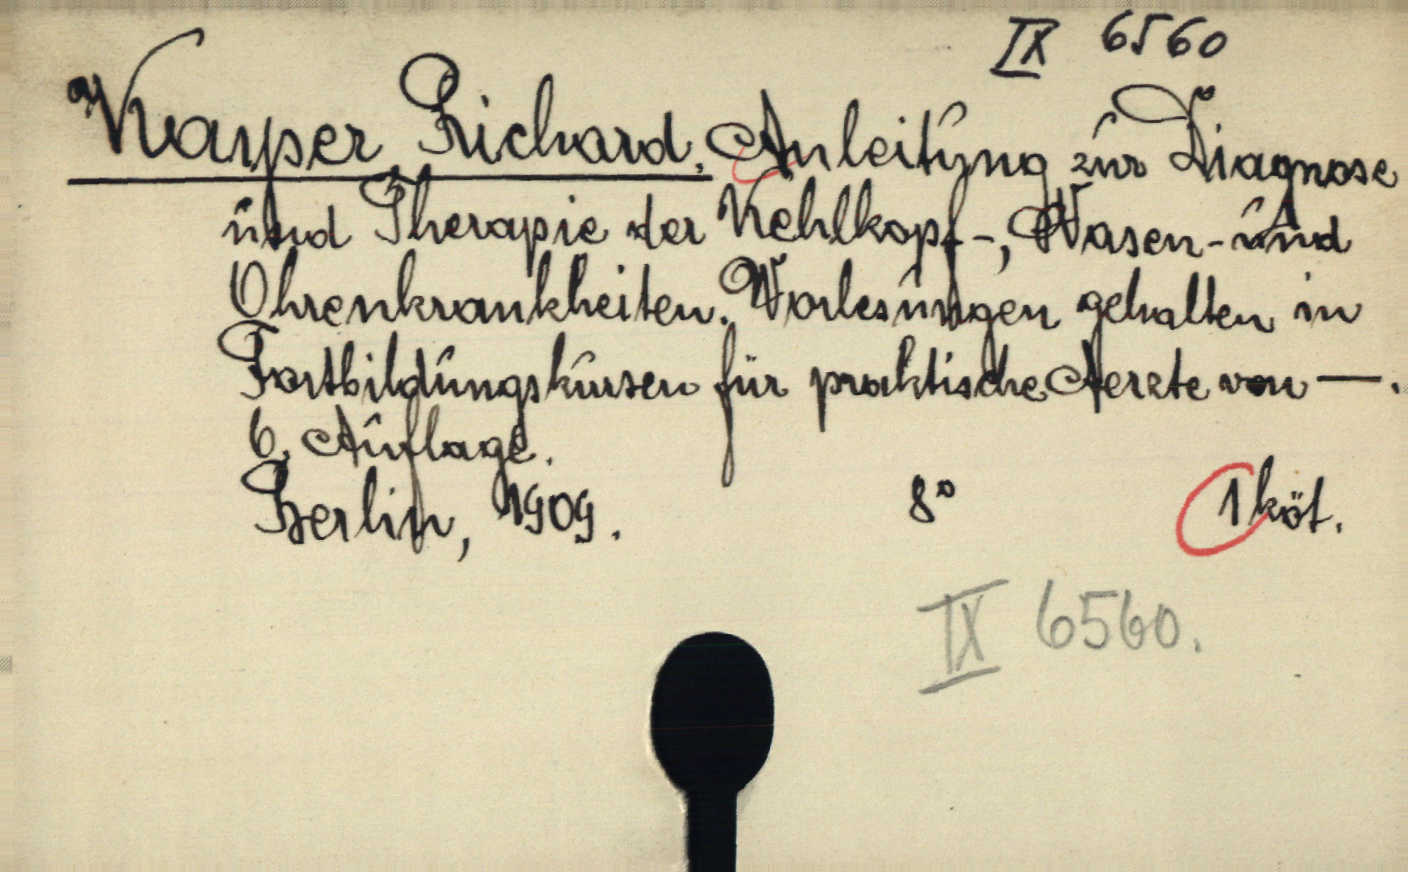 IX 6560
Kayser Richard. Anleitung zur Diagnose
und Therapie der Kehlkopf-, Nasen- und
Ohrenkrankheiten. Vorlesungen gehalten in
Fortbildungskursen für praktische Aerzte von —.
6. Auflage.
Berlin, 1909. 8° 1 köt.
IX 6560.